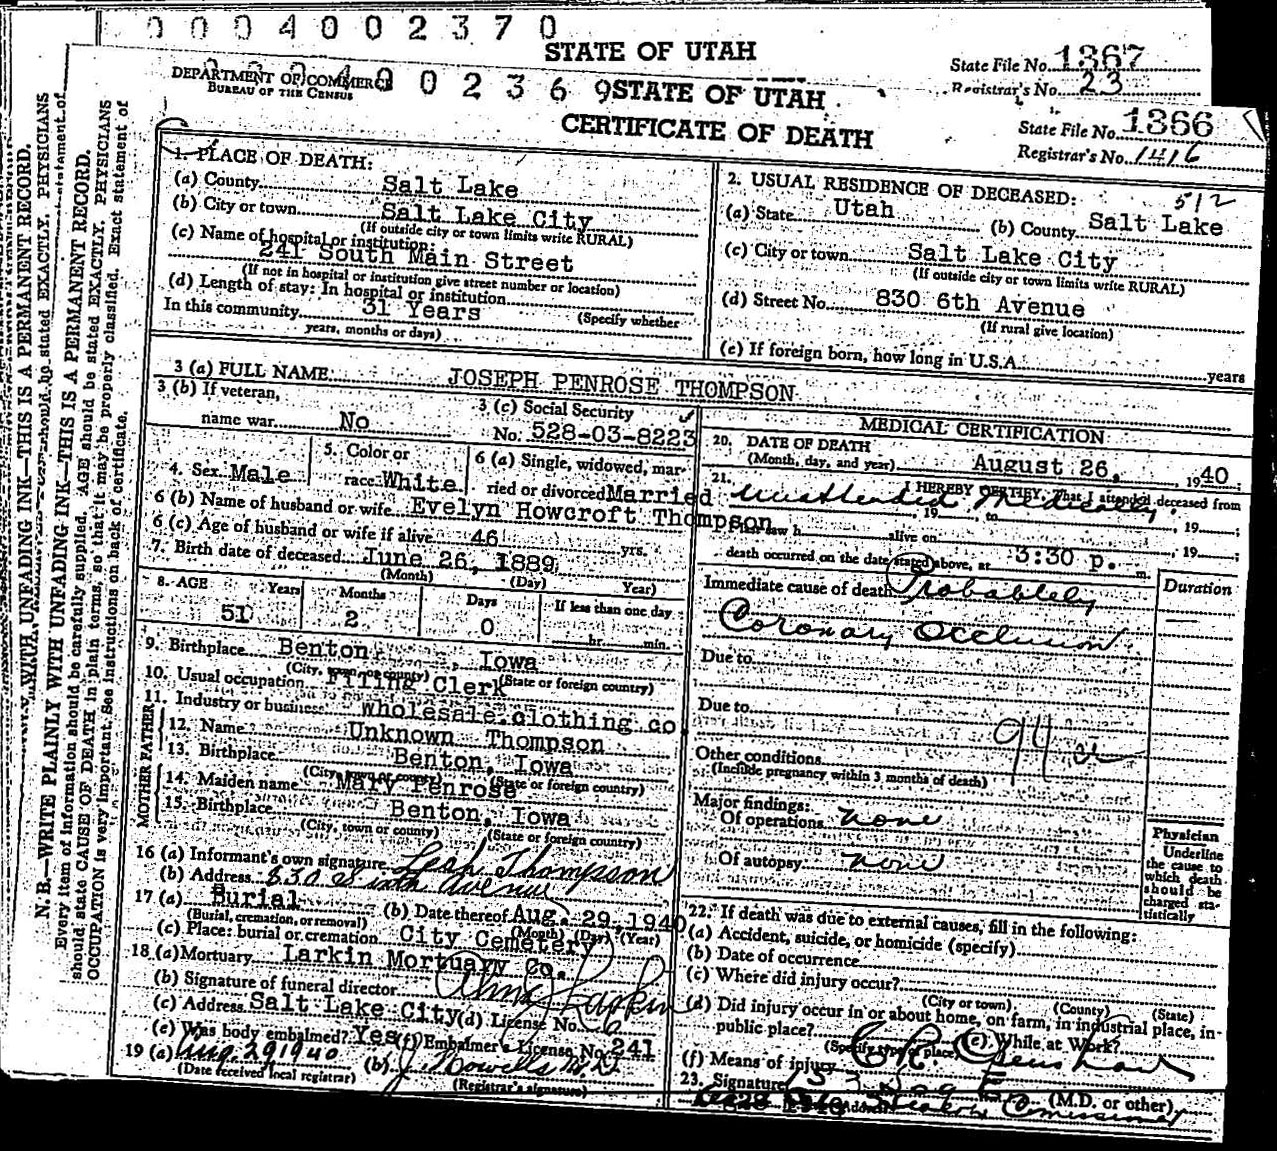 0 0 0 4 0 0 2 3 7 0
STATE OF UTAH
State File No. 1367
Registrar's No. 23
DEPARTMENT OF COMMERCE
BUREAU OF THE CENSUS
0 0 2 3 6 9
STATE OF UTAH
CERTIFICATE OF DEATH
State File No. 1366
Registrar's No. 1416
N. B.—WRITE PLAINLY WITH UNFADING INK—THIS IS A PERMANENT RECORD.
Every item of information should be carefully supplied. AGE should be stated EXACTLY. PHYSICIANS
should state CAUSE OF DEATH in plain terms, so that it may be properly classified. Exact statement of
OCCUPATION is very important. See instructions on back of certificate.
1. PLACE OF DEATH:
(a) County Salt Lake
(b) City or town Salt Lake City
(If outside city or town limits write RURAL)
(c) Name of hospital or institution:
241 South Main Street
(If not in hospital or institution give street number or location)
(d) Length of stay: In hospital or institution
In this community 31 Years (Specify whether
years, months or days)
2. USUAL RESIDENCE OF DECEASED: 512
(a) State Utah (b) County Salt Lake
(c) City or town Salt Lake City
(If outside city or town limits write RURAL)
(d) Street No. 830 6th Avenue
(If rural give location)
(e) If foreign born, how long in U.S.A. years
3 (a) FULL NAME JOSEPH PENROSE THOMPSON
3 (b) If veteran,
name war No
3 (c) Social Security
No. 528-03-8223
4. Sex Male
5. Color or
race White
6 (a) Single, widowed, mar-
ried or divorced Married
6 (b) Name of husband or wife Evelyn Howcroft Thompson
6 (c) Age of husband or wife if alive 46 yrs.
7. Birth date of deceased June 26, 1889
(Month) (Day) Year)
8. AGE Years Months Days If less than one day
51 2 0 hr. min.
9. Birthplace Benton, Iowa
(City, town or county) (State or foreign country)
10. Usual occupation Filing Clerk
11. Industry or business wholesale clothing co.
FATHER
12. Name Unknown Thompson
13. Birthplace Benton, Iowa
(City, town or county) (State or foreign country)
MOTHER
14. Maiden name Mary Penrose
15. Birthplace Benton, Iowa
(City, town or county) (State or foreign country)
16 (a) Informant's own signature Leah Thompson
(b) Address 830 Sixth Avenue
17 (a) Burial (b) Date thereof Aug. 29, 1940
(Burial, cremation, or removal) (Month) (Day) (Year)
(c) Place: burial or cremation City Cemetery
18 (a) Mortuary Larkin Mortuary Co.
(b) Signature of funeral director Larkin
(c) Address Salt Lake City (d) License No. 6
(e) Was body embalmed? Yes (f) Embalmer's License No. 241
19 (a) Aug. 29 1940 (b) J.
(Date received local registrar) (Registrar's signature)
MEDICAL CERTIFICATION
20. DATE OF DEATH
(Month, day, and year) August 26, 1940
21. I HEREBY CERTIFY, That I attended deceased from
Unattended Medically
, 19 , to , 19 ;
alive on , 19 ;
death occurred on the date stated above, at 3:30 p. m.
Immediate cause of death Probablely
Coronary Occlusion
Duration
Due to
Due to
94 a
Other conditions
(Include pregnancy within 3 months of death)
Major findings:
Of operations none
Of autopsy none
Physician
Underline
the cause to
which death
should be
charged sta-
tistically
22. If death was due to external causes, fill in the following:
(a) Accident, suicide, or homicide (specify)
(b) Date of occurrence
(c) Where did injury occur?
(City or town) (County) (State)
(d) Did injury occur in or about home, on farm, in industrial place, in-
public place?
(Specify type of place) (e) While at Work?
(f) Means of injury
23. Signature (M.D. or other)